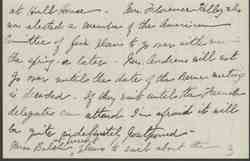 at Hull House - Mrs Florence Kelley also
was elected a member of the American
Committee of Five plans to go over with me in
the spring or later - Mrs. Andrews will not
go over until the date of the Berne meeting
is decided - If they wait until the French
delegates can attend I'm afraid it will
be quite indefinitely postponed -
Miss Balch plans to sail about the